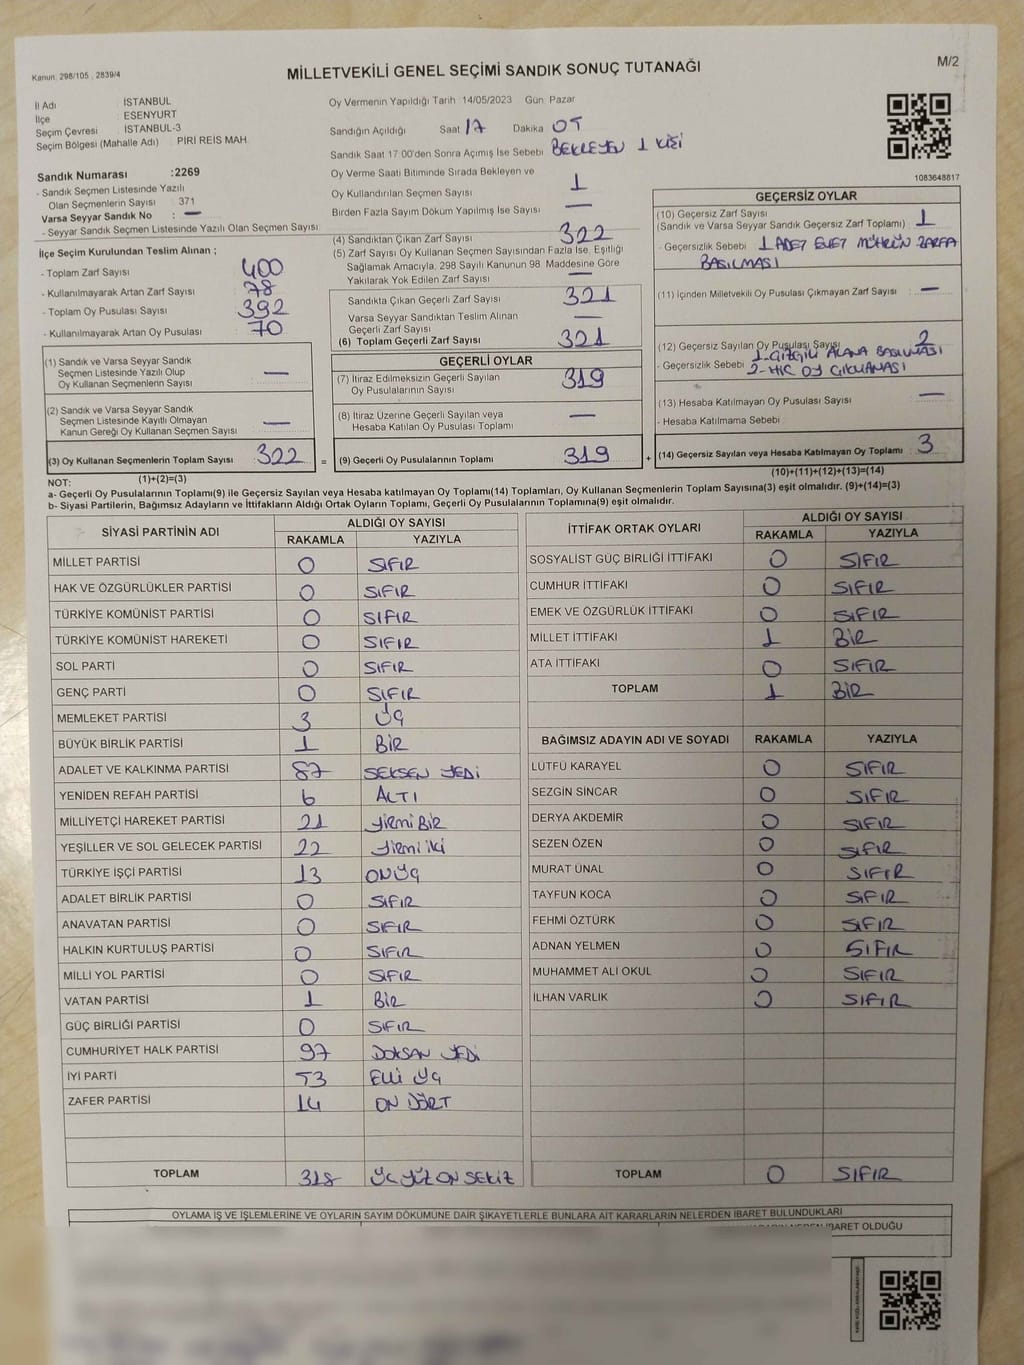 Kanun: 298/105 , 2839/4
MİLLETVEKİLİ GENEL SEÇİMİ SANDIK SONUÇ TUTANAĞI
M/2
İl Adı : İSTANBUL
İlçe : ESENYURT
Seçim Çevresi : İSTANBUL-3
Seçim Bölgesi (Mahalle Adı) : PİRİ REİS MAH
Sandık Numarası :2269
- Sandık Seçmen Listesinde Yazılı
Olan Seçmenlerin Sayısı : 371
Varsa Seyyar Sandık No : —
- Seyyar Sandık Seçmen Listesinde Yazılı Olan Seçmen Sayısı
Oy Vermenin Yapıldığı Tarih :14/05/2023 Gün: Pazar
Sandığın Açıldığı Saat 17 Dakika 05
Sandık Saat 17:00'den Sonra Açımış İse Sebebi BEKLEYEN 1 KİŞİ
Oy Verme Saati Bitiminde Sırada Bekleyen ve
Oy Kullandırılan Seçmen Sayısı 1
Birden Fazla Sayım Döküm Yapılmış İse Sayısı —
1083648817
İlçe Seçim Kurulundan Teslim Alınan ;
- Toplam Zarf Sayısı 400
- Kullanılmayarak Artan Zarf Sayısı : 78
- Toplam Oy Pusulası Sayısı : 392
- Kullanılmayarak Artan Oy Pusulası : 70
(1) Sandık ve Varsa Seyyar Sandık
Seçmen Listesinde Yazılı Olup
Oy Kullanan Seçmenlerin Sayısı : —
(2) Sandık ve Varsa Seyyar Sandık
Seçmen Listesinde Kayıtlı Olmayan
Kanun Gereği Oy Kullanan Seçmen Sayısı : —
(3) Oy Kullanan Seçmenlerin Toplam Sayısı : 322
(1)+(2)=(3)
(4) Sandıktan Çıkan Zarf Sayısı 322
(5) Zarf Sayısı Oy Kullanan Seçmen Sayısından Fazla İse, Eşitliği
Sağlamak Amacıyla, 298 Sayılı Kanunun 98. Maddesine Göre
Yakılarak Yok Edilen Zarf Sayısı : —
Sandıkta Çıkan Geçerli Zarf Sayısı : 321
Varsa Seyyar Sandıktan Teslim Alınan
Geçerli Zarf Sayısı : —
(6) Toplam Geçerli Zarf Sayısı : 321
GEÇERLİ OYLAR
(7) İtiraz Edilmeksizin Geçerli Sayılan
Oy Pusulalarının Sayısı : 319
(8) İtiraz Üzerine Geçerli Sayılan veya
Hesaba Katılan Oy Pusulası Toplamı : —
= (9) Geçerli Oy Pusulalarının Toplamı : 319
GEÇERSİZ OYLAR
(10) Geçersiz Zarf Sayısı
(Sandık ve Varsa Seyyar Sandık Geçersiz Zarf Toplamı) : 1
- Geçersizlik Sebebi : 1 ADET EVET MÜHRÜN ZARFA
BASILMASI
(11) İçinden Milletvekili Oy Pusulası Çıkmayan Zarf Sayısı : —
(12) Geçersiz Sayılan Oy Pusulası Sayısı 2
- Geçersizlik Sebebi : 1-ÇİZGİLİ ALANA BASILMASI
2-HİÇ OY ÇIKMAMASI
(13) Hesaba Katılmayan Oy Pusulası Sayısı : —
- Hesaba Katılmama Sebebi :
+ (14) Geçersiz Sayılan veya Hesaba Katılmayan Oy Toplamı : 3
(10)+(11)+(12)+(13)=(14)
NOT:
a- Geçerli Oy Pusulalarının Toplamı(9) ile Geçersiz Sayılan veya Hesaba katılmayan Oy Toplamı(14) Toplamları, Oy Kullanan Seçmenlerin Toplam Sayısına(3) eşit olmalıdır. (9)+(14)=(3)
b- Siyasi Partilerin, Bağımsız Adayların ve İttifakların Aldığı Ortak Oyların Toplamı, Geçerli Oy Pusulalarının Toplamına(9) eşit olmalıdır.
SİYASİ PARTİNİN ADI ALDIĞI OY SAYISI
RAKAMLA YAZIYLA
MİLLET PARTİSİ 0 SIFIR
HAK VE ÖZGÜRLÜKLER PARTİSİ 0 SIFIR
TÜRKİYE KOMÜNİST PARTİSİ 0 SIFIR
TÜRKİYE KOMÜNİST HAREKETİ 0 SIFIR
SOL PARTİ 0 SIFIR
GENÇ PARTİ 0 SIFIR
MEMLEKET PARTİSİ 3 ÜÇ
BÜYÜK BİRLİK PARTİSİ 1 BİR
ADALET VE KALKINMA PARTİSİ 87 SEKSEN YEDİ
YENİDEN REFAH PARTİSİ 6 ALTI
MİLLİYETÇİ HAREKET PARTİSİ 21 YİRMİ BİR
YEŞİLLER VE SOL GELECEK PARTİSİ 22 YİRMİ İKİ
TÜRKİYE İŞÇİ PARTİSİ 13 ON ÜÇ
ADALET BİRLİK PARTİSİ 0 SIFIR
ANAVATAN PARTİSİ 0 SIFIR
HALKIN KURTULUŞ PARTİSİ 0 SIFIR
MİLLİ YOL PARTİSİ 0 SIFIR
VATAN PARTİSİ 1 BİR
GÜÇ BİRLİĞİ PARTİSİ 0 SIFIR
CUMHURİYET HALK PARTİSİ 97 DOKSAN YEDİ
İYİ PARTİ 53 ELLİ ÜÇ
ZAFER PARTİSİ 14 ON DÖRT
TOPLAM 318 ÜÇ YÜZ ON SEKİZ
İTTİFAK ORTAK OYLARI ALDIĞI OY SAYISI
RAKAMLA YAZIYLA
SOSYALİST GÜÇ BİRLİĞİ İTTİFAKI 0 SIFIR
CUMHUR İTTİFAKI 0 SIFIR
EMEK VE ÖZGÜRLÜK İTTİFAKI 0 SIFIR
MİLLET İTTİFAKI 1 BİR
ATA İTTİFAKI 0 SIFIR
TOPLAM 1 BİR
BAĞIMSIZ ADAYIN ADI VE SOYADI RAKAMLA YAZIYLA
LÜTFÜ KARAYEL 0 SIFIR
SEZGİN SİNCAR 0 SIFIR
DERYA AKDEMİR 0 SIFIR
SEZEN ÖZEN 0 SIFIR
MURAT ÜNAL 0 SIFIR
TAYFUN KOCA 0 SIFIR
FEHMİ ÖZTÜRK 0 SIFIR
ADNAN YELMEN 0 SIFIR
MUHAMMET ALİ OKUL 0 SIFIR
İLHAN VARLIK 0 SIFIR
TOPLAM 0 SIFIR
OYLAMA İŞ VE İŞLEMLERİNE VE OYLARIN SAYIM DÖKÜMÜNE DAİR ŞİKAYETLERLE BUNLARA AİT KARARLARIN NELERDEN İBARET BULUNDUKLARI
İBARET OLDUĞU